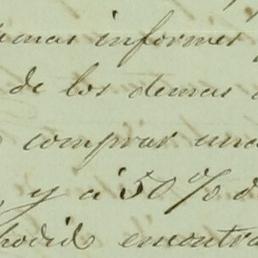 demas informes
de los demas
comprar una
, y á 50% d
podido encontra